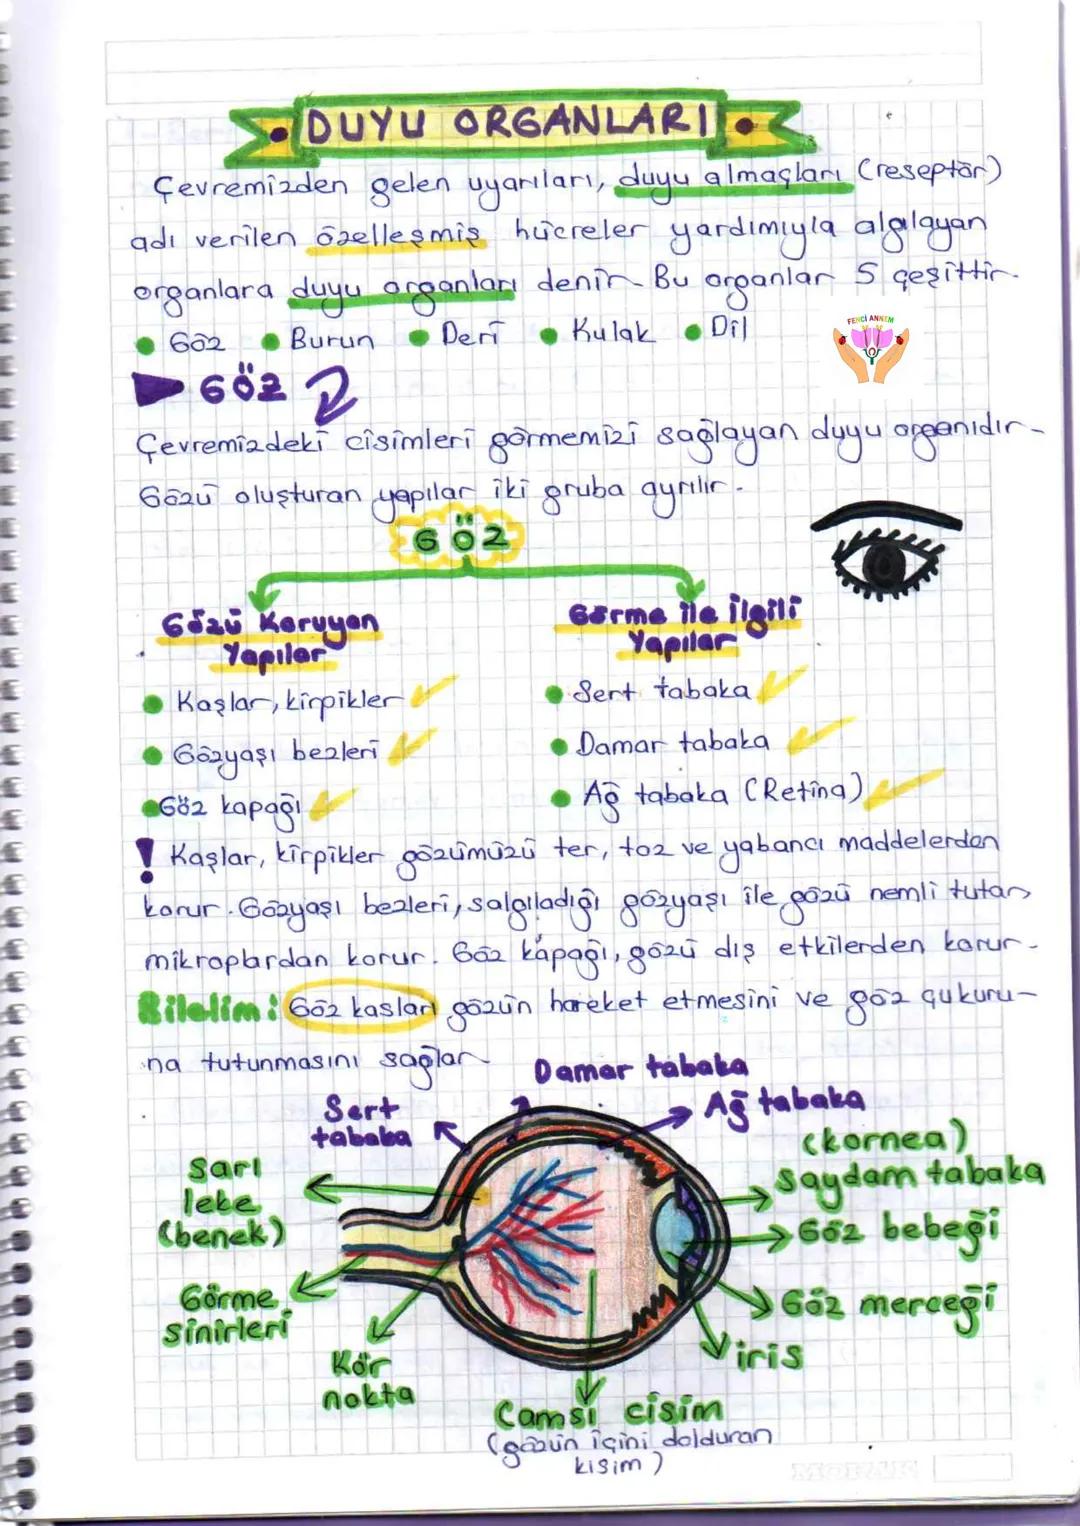 DUYU ORGANLARI
Çevremizden gelen uyarıları, duyu almaçları (reseptör)
adı verilen özelleşmiş hücreler yardımıyla algılayan
organlara duyu organları denir. Bu organlar 5 çeşittir.
• Göz • Burun • Deri • Kulak • Dil
FENCİ ANNEM
GÖZ
Çevremizdeki cisimleri görmemizi sağlayan duyu organıdır.
Gözü oluşturan yapılar iki gruba ayrılır.
GÖZ
Gözü Koruyan Yapılar
Görme ile ilgili Yapılar
• Kaşlar, kirpikler
• Gözyaşı bezleri
• Göz kapağı
• Sert tabaka
• Damar tabaka
• Ağ tabaka (Retina)
! Kaşlar, kirpikler gözümüzü ter, toz ve yabancı maddelerden
korur. Gözyaşı bezleri, salgıladığı gözyaşı ile gözü nemli tutar,
mikroplardan korur. Göz kapağı, gözü dış etkilerden korur.
Bilelim: Göz kasları gözün hareket etmesini ve göz çukuru-
na tutunmasını sağlar.
Damar tabaka
Sert tabaka
Ağ tabaka
(kornea)
saydam tabaka
Sarı
leke
(benek)
Göz bebeği
Görme
sinirleri
Göz merceği
Kör
nokta
iris
Camsı cisim
(gözün içini dolduran
kısım)